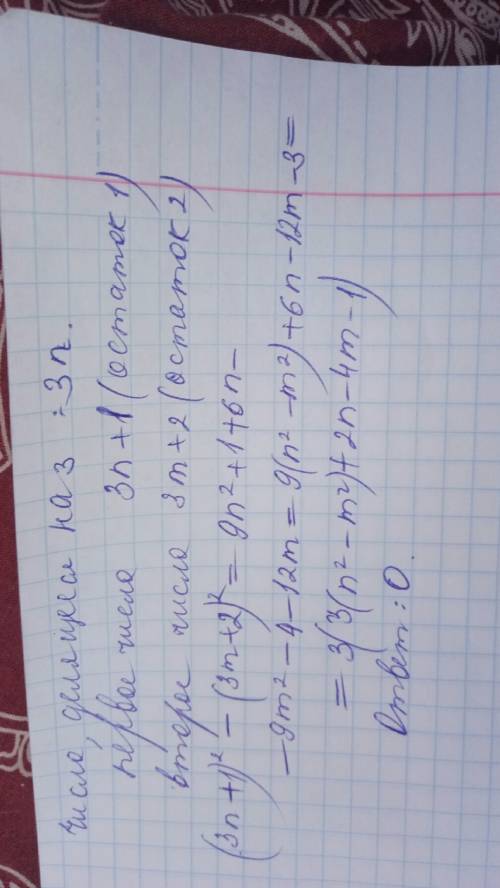 Число, делящееся на 3 :3n.
первое число 3n+1 (остаток 1)
второе число 3m+2 (остаток 2)
(3n+1)² − (3m+2)² = 9n²+1+6n−
−9m²−4−12m = 9(n²−m²)+6n−12m−3=
= 3(3(n²−m²)+2n−4m−1)
Ответ: 0.